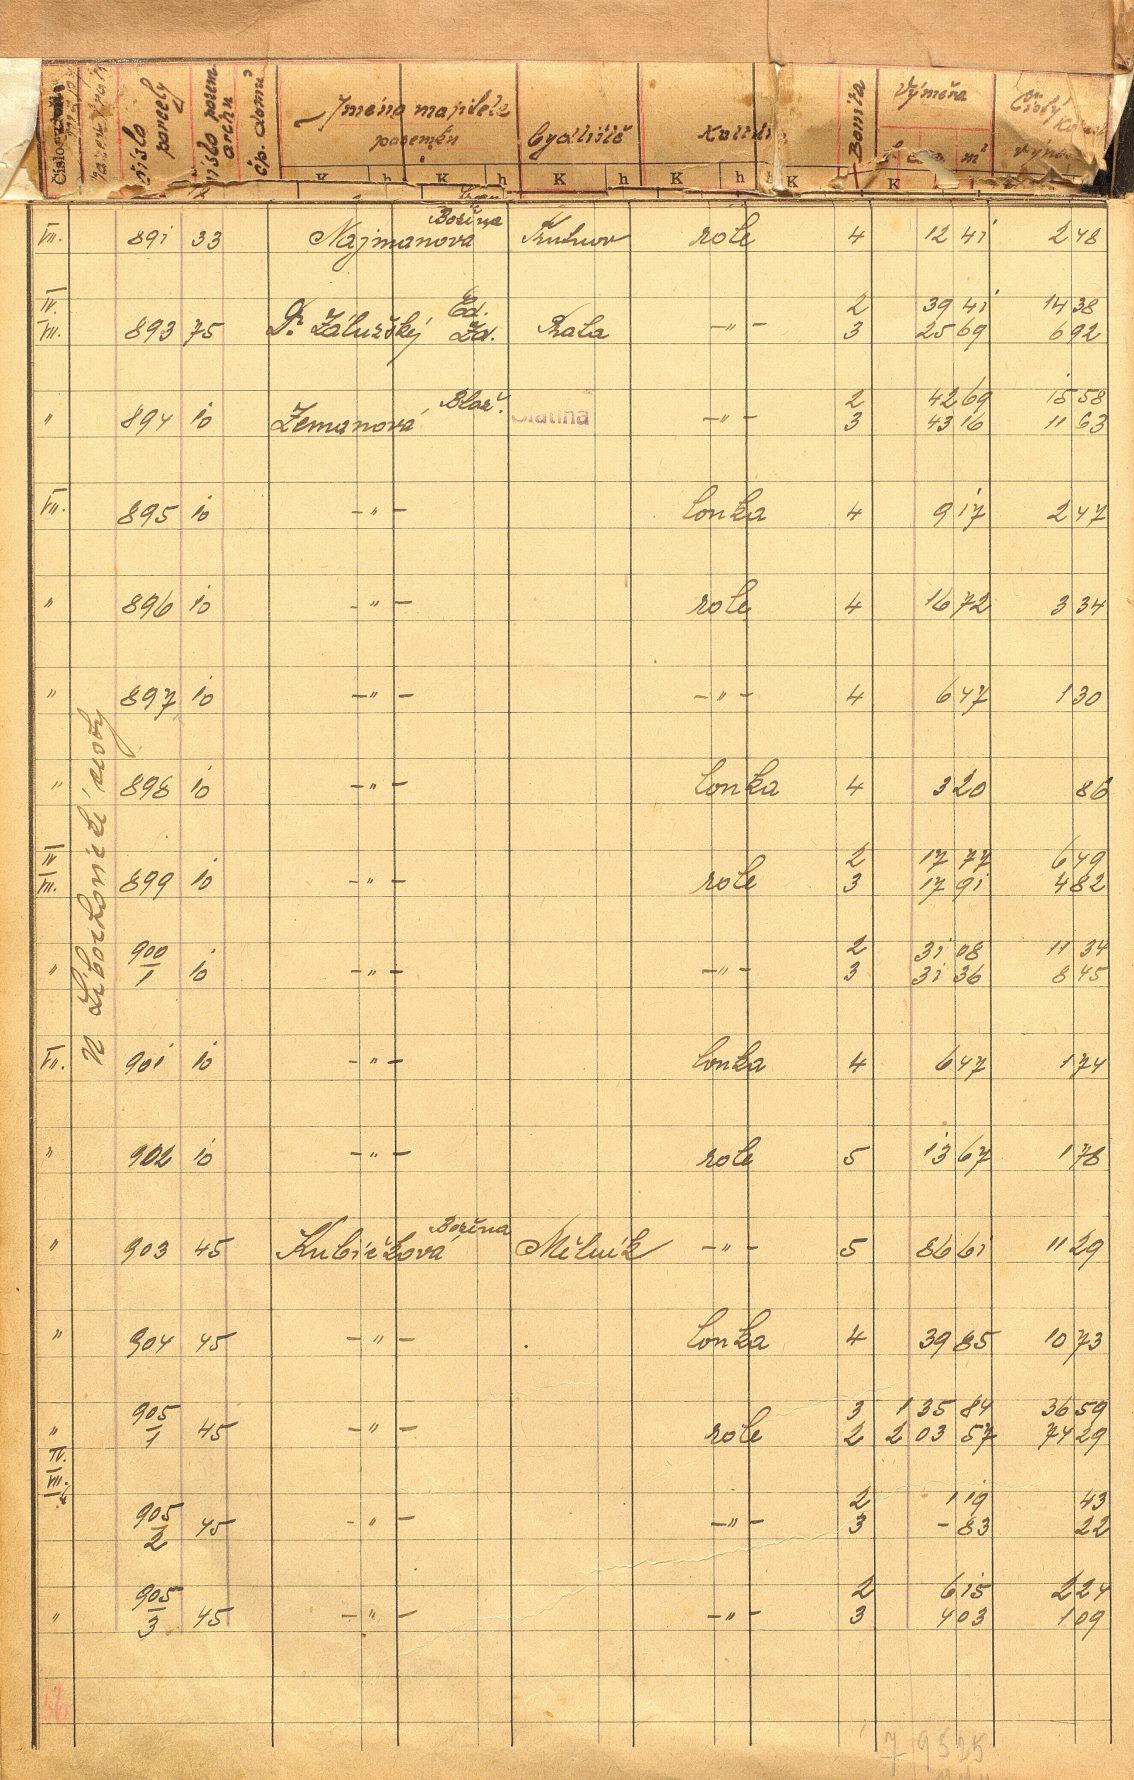 číslo parcely
číslo pozem. archu
čp. domu
Jméno majitele pozemku
bydliště
Bonita
Výměra
Čistý
K h K h K h K h K K
VII. 891 33 Najmanová Božena role 4 12 41 2 48
IV. Ed. 2 39 41 14 38
VII. 893 75 Dr. Zálužský Zd. -"- 3 25 69 6 92
Blaž. 2 42 69 15 58
" 894 10 Zemanová Slatina -"- 3 43 16 11 63
VII. 895 10 -"- louka 4 9 17 2 47
" 896 10 -"- role 4 16 72 3 34
" 897 10 -"- -"- 4 6 47 1 30
" 898 10 -"- louka 4 3 20 86
IV 2 17 77 6 49
VII. 899 10 -"- role 3 17 91 4 82
2 31 08 11 34
" 900/1 10 -"- -"- 3 31 36 8 45
VII. 901 10 -"- louka 4 6 47 1 74
" 902 10 -"- role 5 13 67 1 78
" 903 45 Kubíčková Božena Mělník -"- 5 86 61 11 29
" 904 45 -"- louka 4 39 85 10 73
3 1 35 84 36 59
" 905/1 45 -"- role 2 2 03 57 74 29
IV.
VII.
2 1 19 43
905/2 45 -"- -"- 3 - 83 22
2 6 15 2 24
" 905/3 45 -"- -"- 3 4 03 1 09
7 95 25